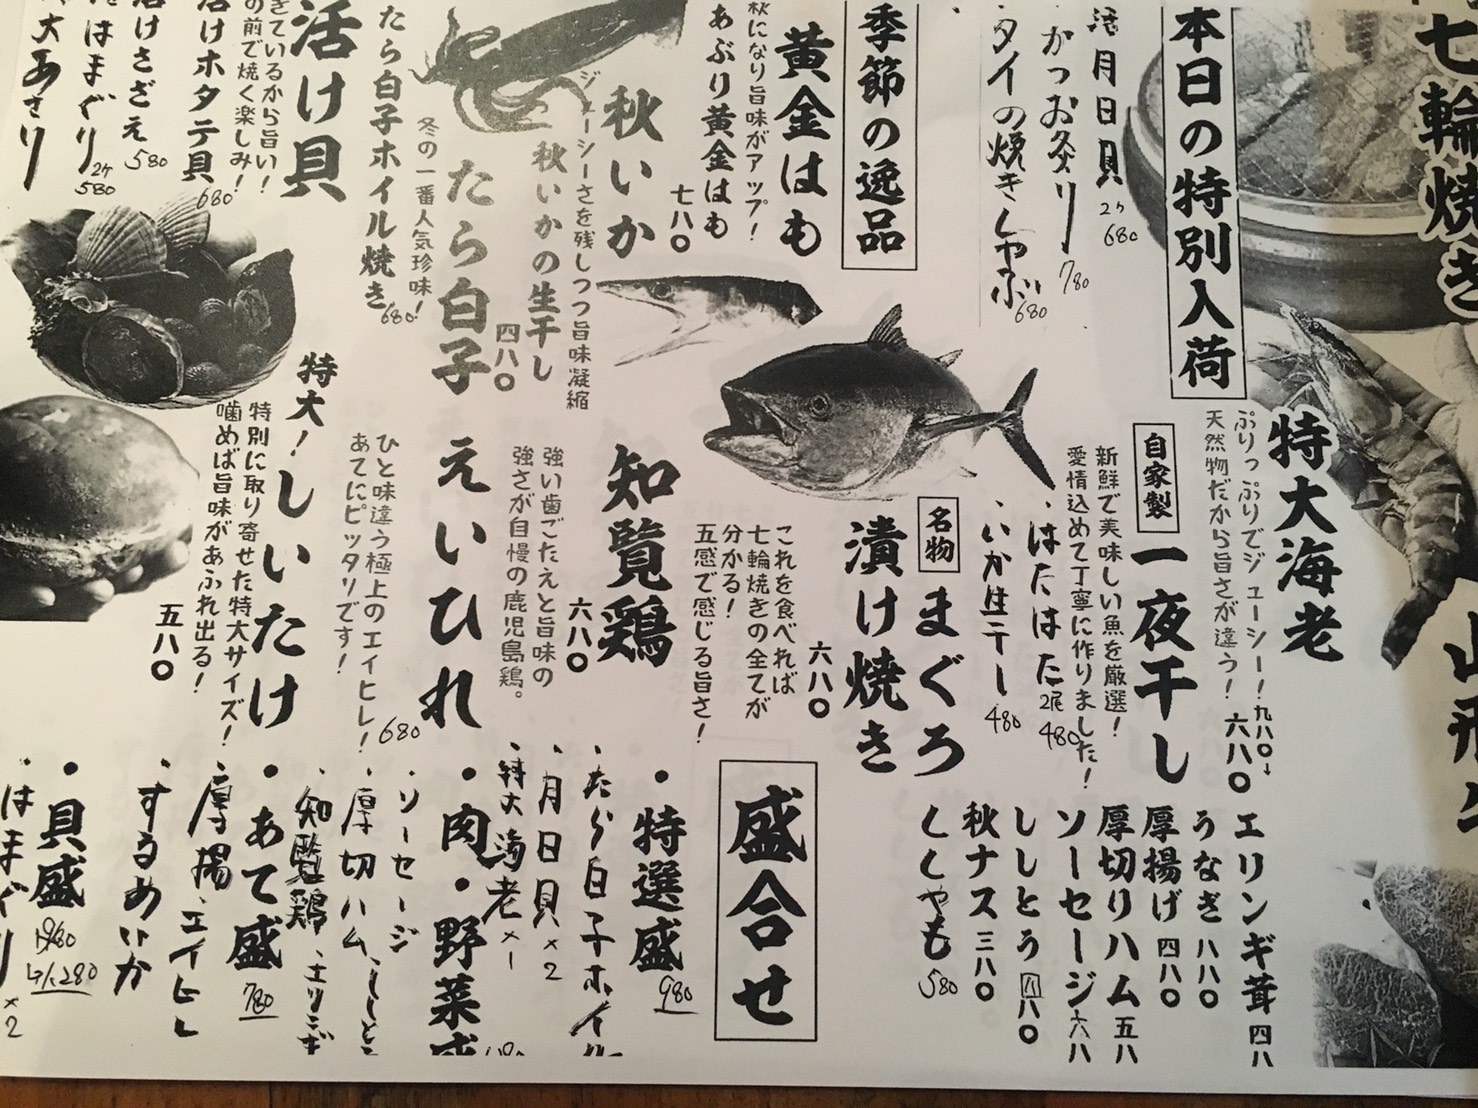 七輪焼き
本日の特別入荷
活月日貝 2ヶ 680
・かつお炙り 780
・タイの焼きしゃぶ 680
季節の逸品
黄金はも
秋になり旨味がアップ!
あぶり黄金はも 七八〇
秋いか
ジューシーさを残しつつ旨味凝縮
秋いかの生干し 四八〇
たら白子
冬の一番人気珍味!
たら白子ホイル焼き 680
活け貝
きているから旨い!
の前で焼く楽しみ!
活けホタテ貝 680
活けさざえ 580
はまぐり 2ヶ 580
大あさり
特大海老
ぷりっぷりでジューシー!
天然物だから旨さが違う!
九八〇→六八〇
自家製
一夜干し
新鮮で美味しい魚を厳選!
愛情込めて丁寧に作りました!
・はたはた 2尾 480
・いか生干し 480
名物
まぐろ
漬け焼き
六八〇
これを食べれば
七輪焼きの全てが
分かる!
五感で感じる旨さ!
知覧鶏
六八〇
強い歯ごたえと旨味の
強さが自慢の鹿児島鶏。
えいひれ
ひと味違う極上のエイヒレ!
あてにピッタリです!
680
特大!しいたけ
特別に取り寄せた特大サイズ!
噛めば旨味があふれ出る!
五八〇
エリンギ茸 四八
うなぎ 八八〇
厚揚げ 四八〇
厚切りハム 五八
ソーセージ 六八
ししとう 八八〇
秋ナス 三八〇
ししゃも 580
盛合せ
・特選盛 980
・たら白子ホイル
・月日貝×2
・特大海老×1
・肉・野菜盛
ソーセージ
・厚切ハム・ししとう
・知覧鶏・エリンギ
・あて盛 780
・厚揚・エイヒレ
・するめいか
・貝盛 1980 → 1,280
・はまぐり×2